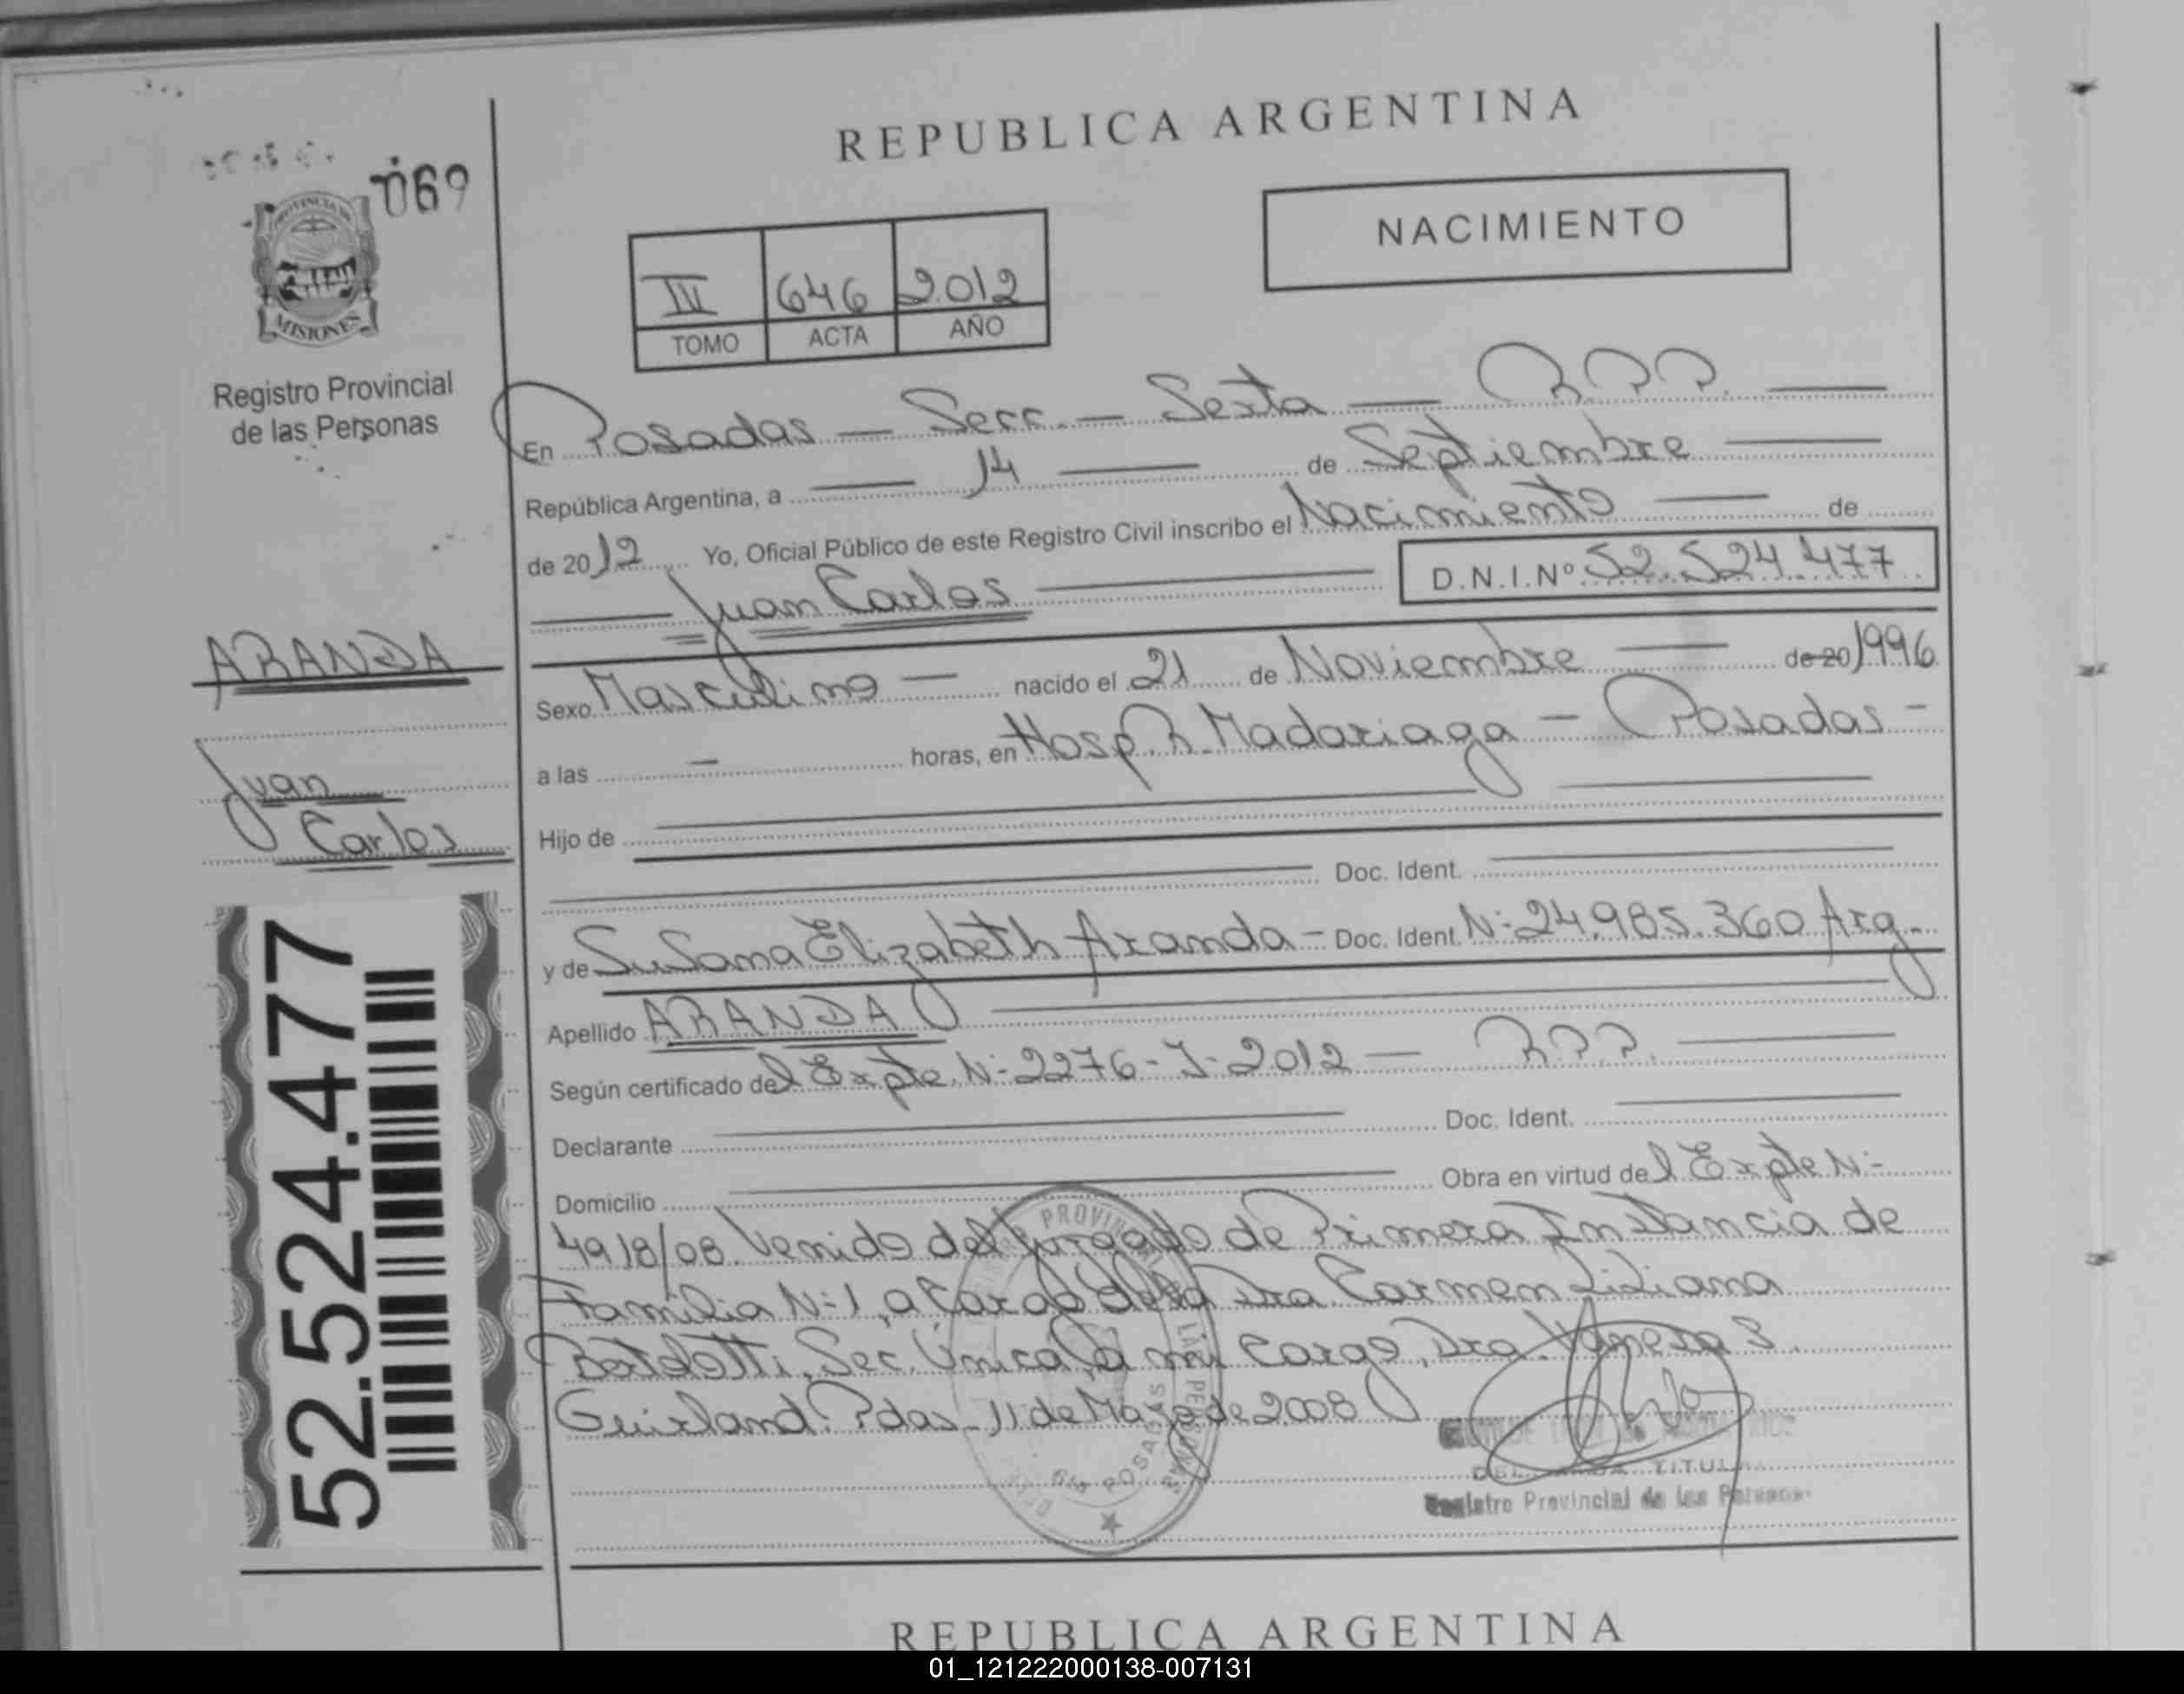 REPUBLICA ARGENTINA
069
PROVINCIA DE
MISIONES
Registro Provincial
de las Personas
NACIMIENTO
III 646 2012
TOMO ACTA AÑO
En Posadas — Secc. — Sexta — R.P.P. —
República Argentina, a — 14 — de Septiembre —
de 2012 Yo, Oficial Público de este Registro Civil inscribo el Nacimiento — de
— Juan Carlos — D.N.I.Nº 52.524.477
ARANDA
Juan
Carlos
52.524.477
Sexo Masculino — nacido el 21 de Noviembre — de 20 1996
a las — horas, en Hosp. R. Madariaga — Posadas -
Hijo de —
— Doc. Ident. —
y de Susana Elizabeth Aranda - Doc. Ident. N: 24.985.360 Arg.
Apellido ARANDA —
Según certificado del Expte. N: 2276-J-2012 — R.P.P. —
Declarante — Doc. Ident. —
Domicilio — Obra en virtud del Expte N:
4918/08. Venido del Juzgado de Primera Instancia de
Familia N:1, a Cargo de la Dra. Carmen Liliana
Sec. Única, a mi Cargo, Dra. Vanessa S.
Guirland. Pdas. 11 de de 2008
POSADAS
DEL TITUL
Registro Provincial de las Personas
REPUBLICA ARGENTINA
01_121222000138-007131